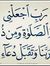 رب اجعلني
الصلوة ومن ذ
ربنا وتقبل دعاء